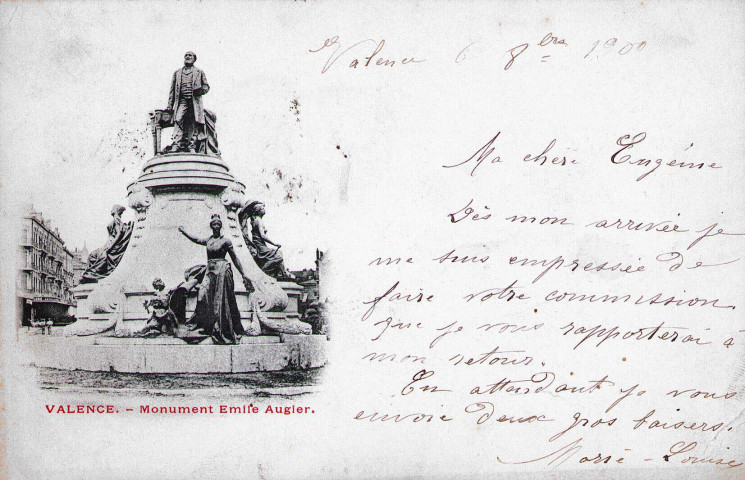 Valence 6 8bre 1900
Ma chère Eugénie
Dès mon arrivée je
me suis empressée de
faire votre commission
que je vous rapporterai à
mon retour.
En attendant je vous
envoie deux gros baisers.
Marie-Louise
VALENCE. – Monument Emile Augier.